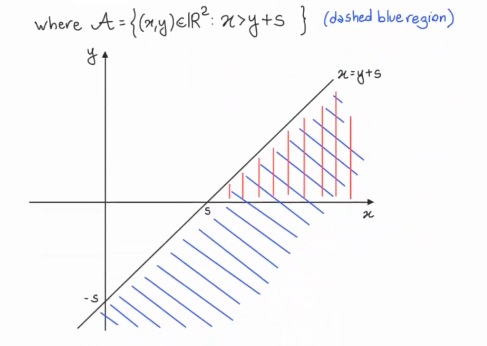 where A = {(x,y)∈ℝ²: x>y+s } (dashed blue region)
y
x=y+s
s
x
-s